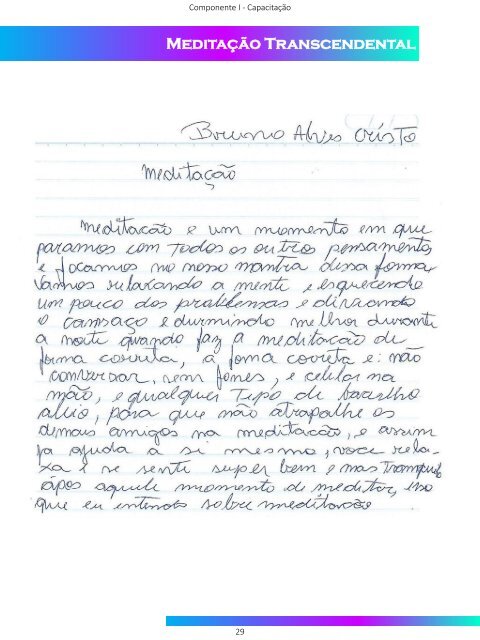 Componente I - Capacitação
Meditação Transcendental
Bruno Alves Cristo
Meditação
Meditacão e um momento em que
paramos com todos os outros pensamentos,
e focamos no nosso mantra dessa forma,
vamos relaxando a mente e esquecendo
um pouco dos problemas e
o cansaço e durmindo melhor durante
a noite quando faz a meditacão de
forma correta, a foma correta e: não
conversar, sem fones, e celular na
mão, e qualquer tipo de barulho
alhio, para que não atrapalhe os
demais amigos na meditacão, e assim
ja ajuda a si mesmo, voce rela-
xa e se sente super bem e mas tranquilo
após aquele momento de meditar, isso
que eu intendo sobre meditacão
29